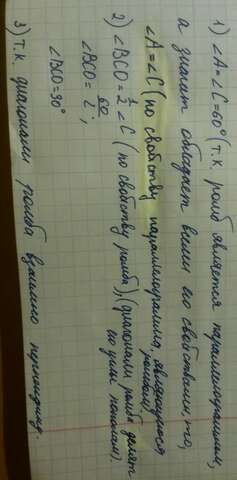 1) ∠A=∠C=60° (т.к. ромб является параллелограммом,
а значит обладает всеми его свойствами, то,
∠A=∠C (по свойству параллелограмма, являющегося
ромбом).
2) ∠BCO=½ ∠C (по свойству ромба), (диагонали ромба делят
его углы пополам).
∠BCO= 60/2;
∠BCO=30°
3) т.к. диагонали ромба взаимно перпендик.